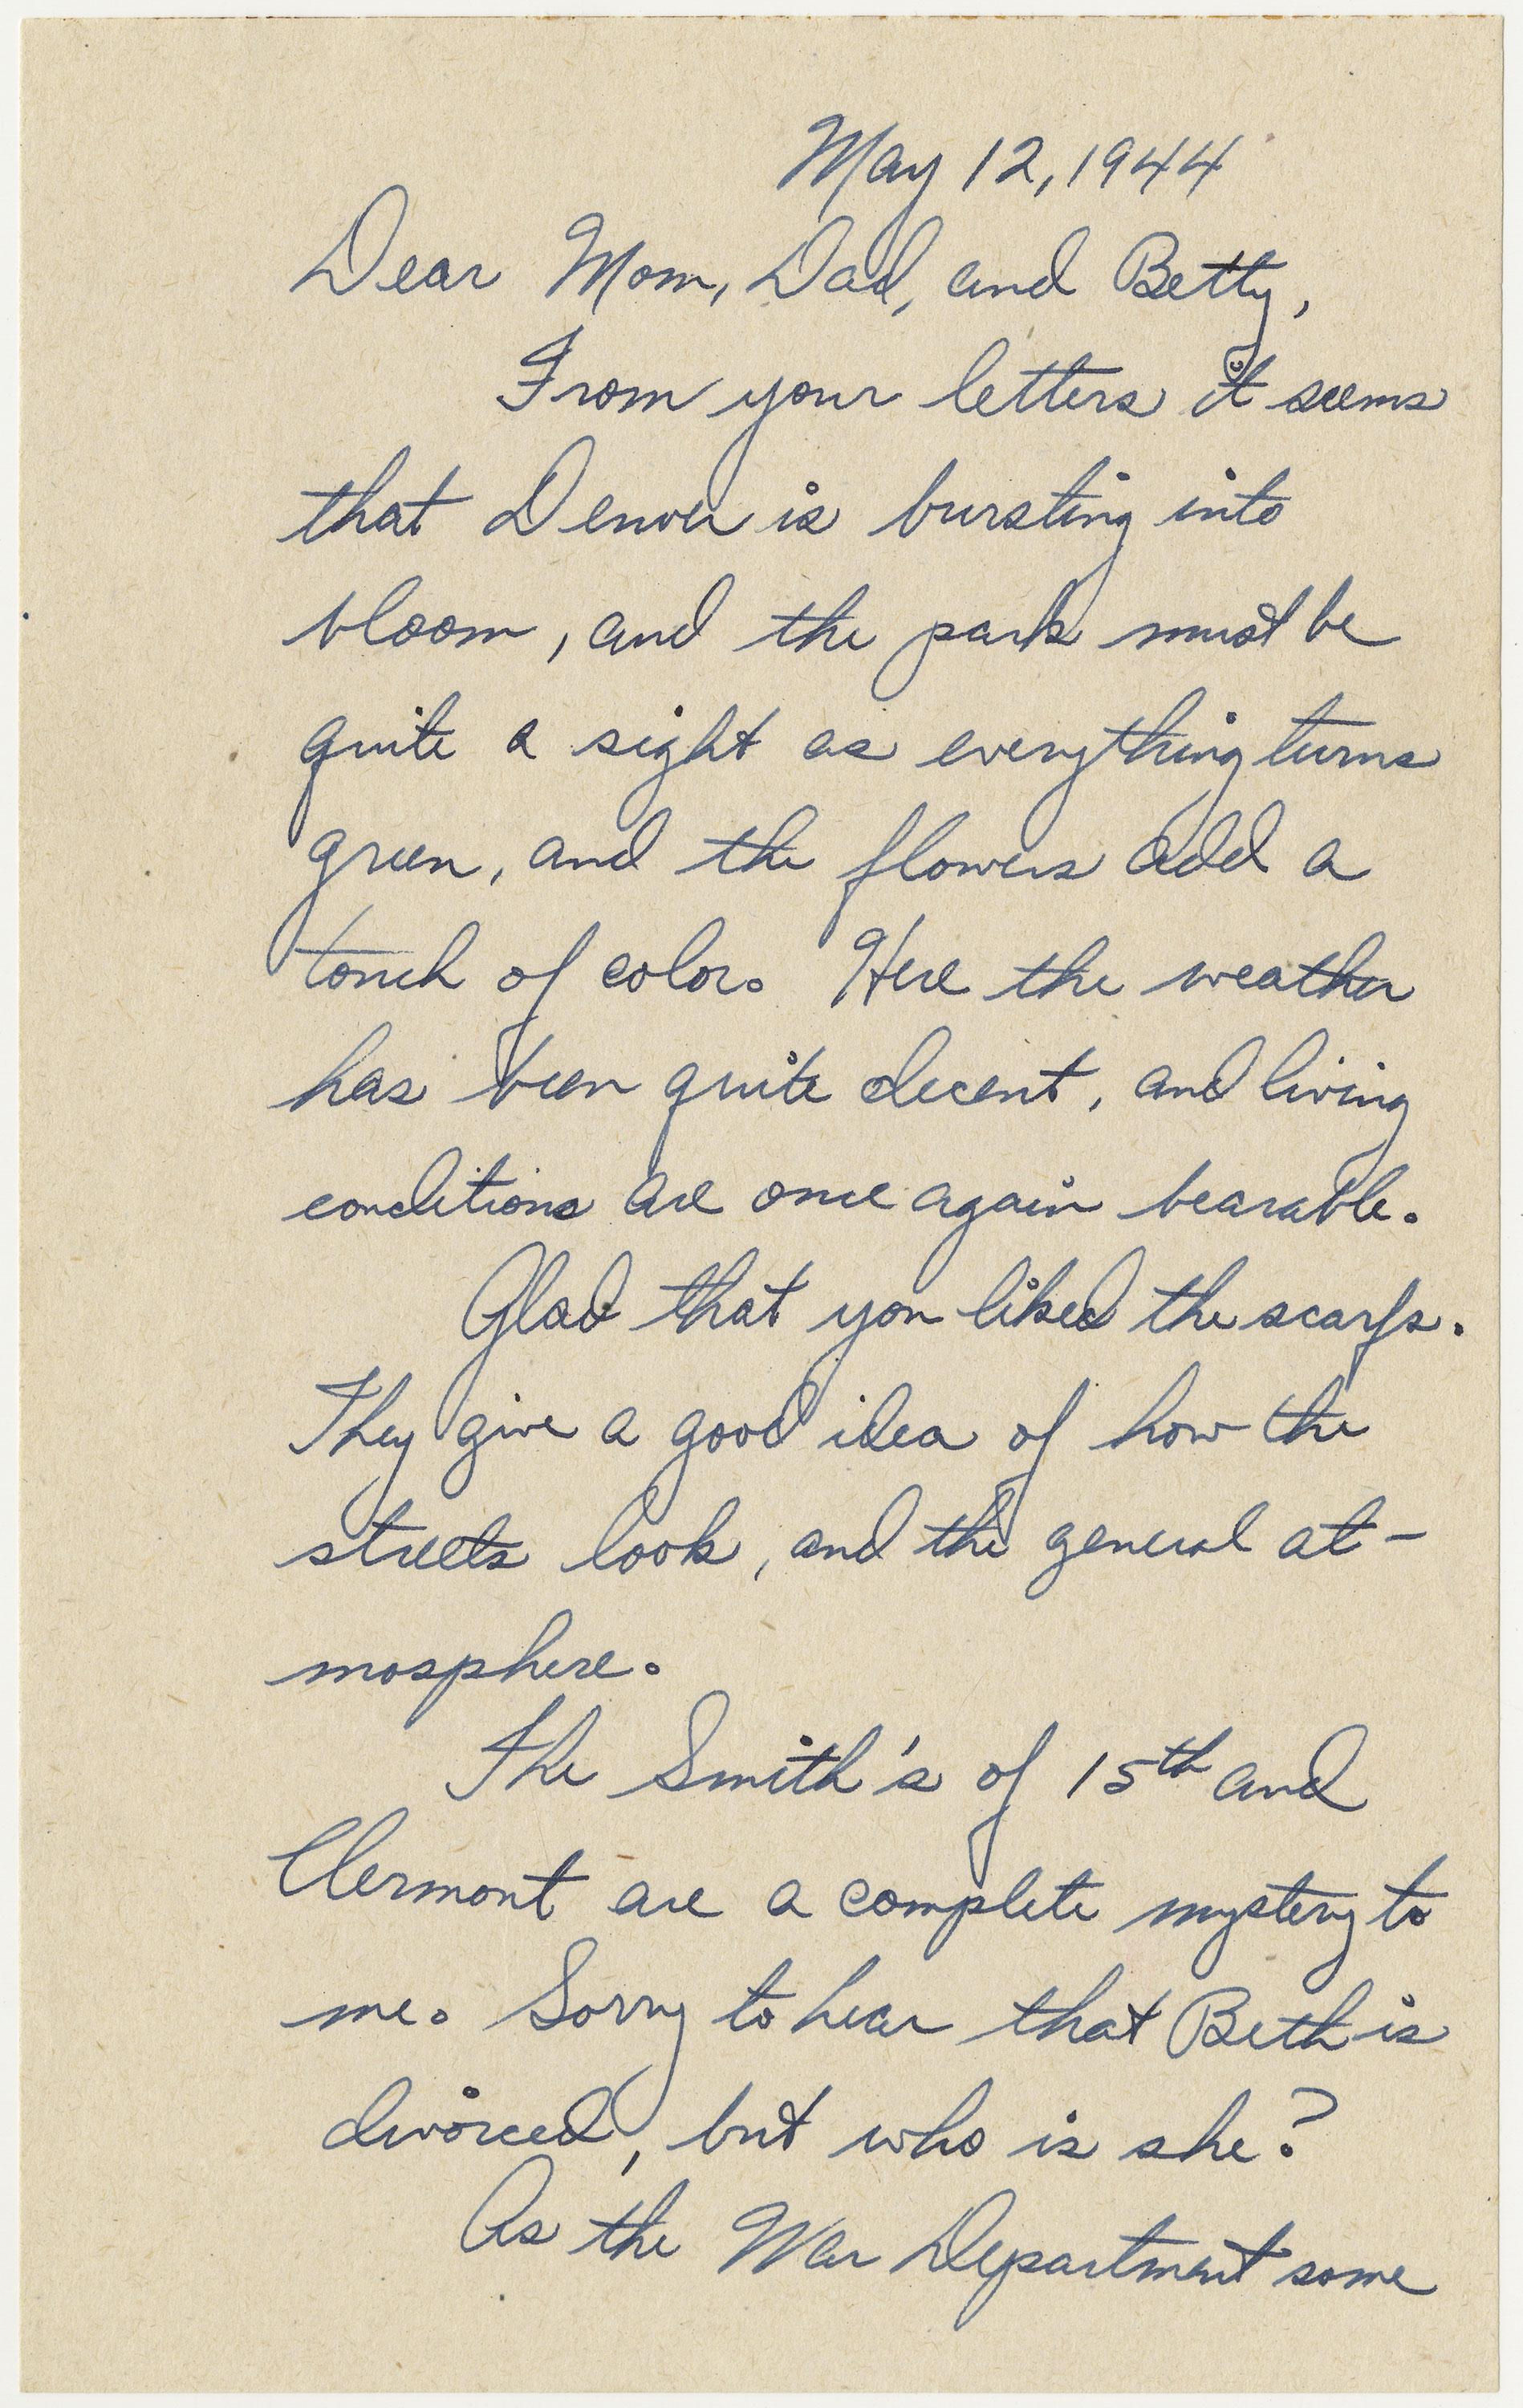 May 12, 1944
Dear Mom, Dad, and Betty,
From your letters it seems
that Denver is bursting into
bloom, and the park must be
quite a sight as everything turns
green, and the flowers add a
touch of color. Here the weather
has been quite decent, and living
conditions are once again bearable.
Glad that you liked the scarfs.
They give a good idea of how the
streets look, and the general at-
mosphere.
The Smith's of 15th and
Clermont are a complete mystery to
me. Sorry to hear that Beth is
divorced, but who is she?
As the War Department some